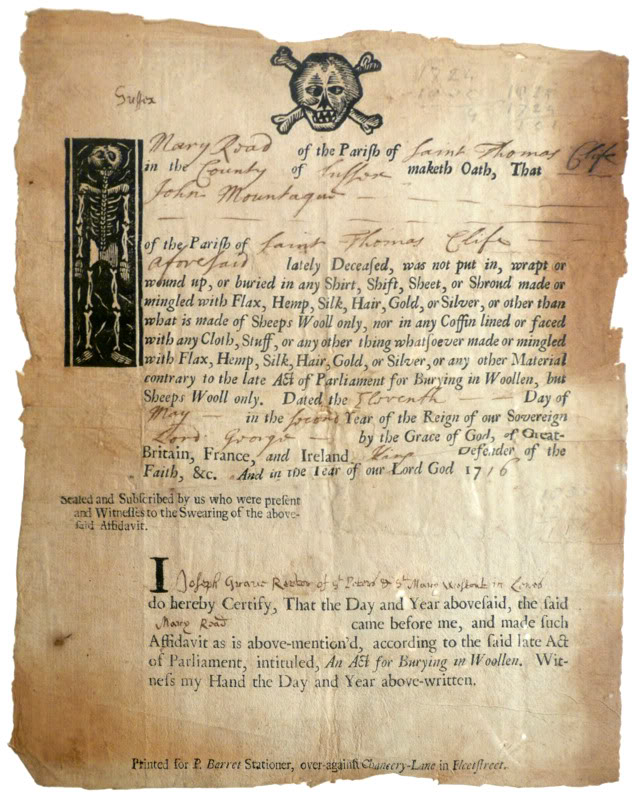 Sussex
Mary Road of the Pariſh of Saint Thomas Clife
in the County of Suſſex maketh Oath, That
John Mountague
of the Pariſh of Saint Thomas Clife
aforesaid lately Deceaſed, was not put in, wrapt or
wound up, or buried in any Shirt, Shift, Sheet, or Shroud made or
mingled with Flax, Hemp, Silk, Hair, Gold, or Silver, or other than
what is made of Sheeps Wooll only, nor in any Coffin lined or faced
with any Cloth, Stuff, or any other thing whatſoever made or mingled
with Flax, Hemp, Silk, Hair, Gold, or Silver, or any other Material
contrary to the late Act of Parliament for Burying in Woollen, but
Sheeps Wooll only. Dated the Eleventh Day of
May in the ſecond Year of the Reign of our Sovereign
Lord George by the Grace of God, of Great-
Britain, France, and Ireland King Defender of the
Faith, &c. And in the Year of our Lord God 1716
Sealed and Subſcribed by us who were preſent
and Witneſſes to the Swearing of the above-
ſaid Affidavit.
I Joseph Grave Rector of St Peters & St Mary Westout in Lewes
do hereby Certify, That the Day and Year aboveſaid, the ſaid
Mary Road came before me, and made ſuch
Affidavit as is above-mention'd, according to the ſaid late Act
of Parliament, intituled, An Act for Burying in Woollen. Wit-
neſs my Hand the Day and Year above-written.
Printed for P. Barret Stationer, over-againſt Chancery-Lane in Fleetſtreet.